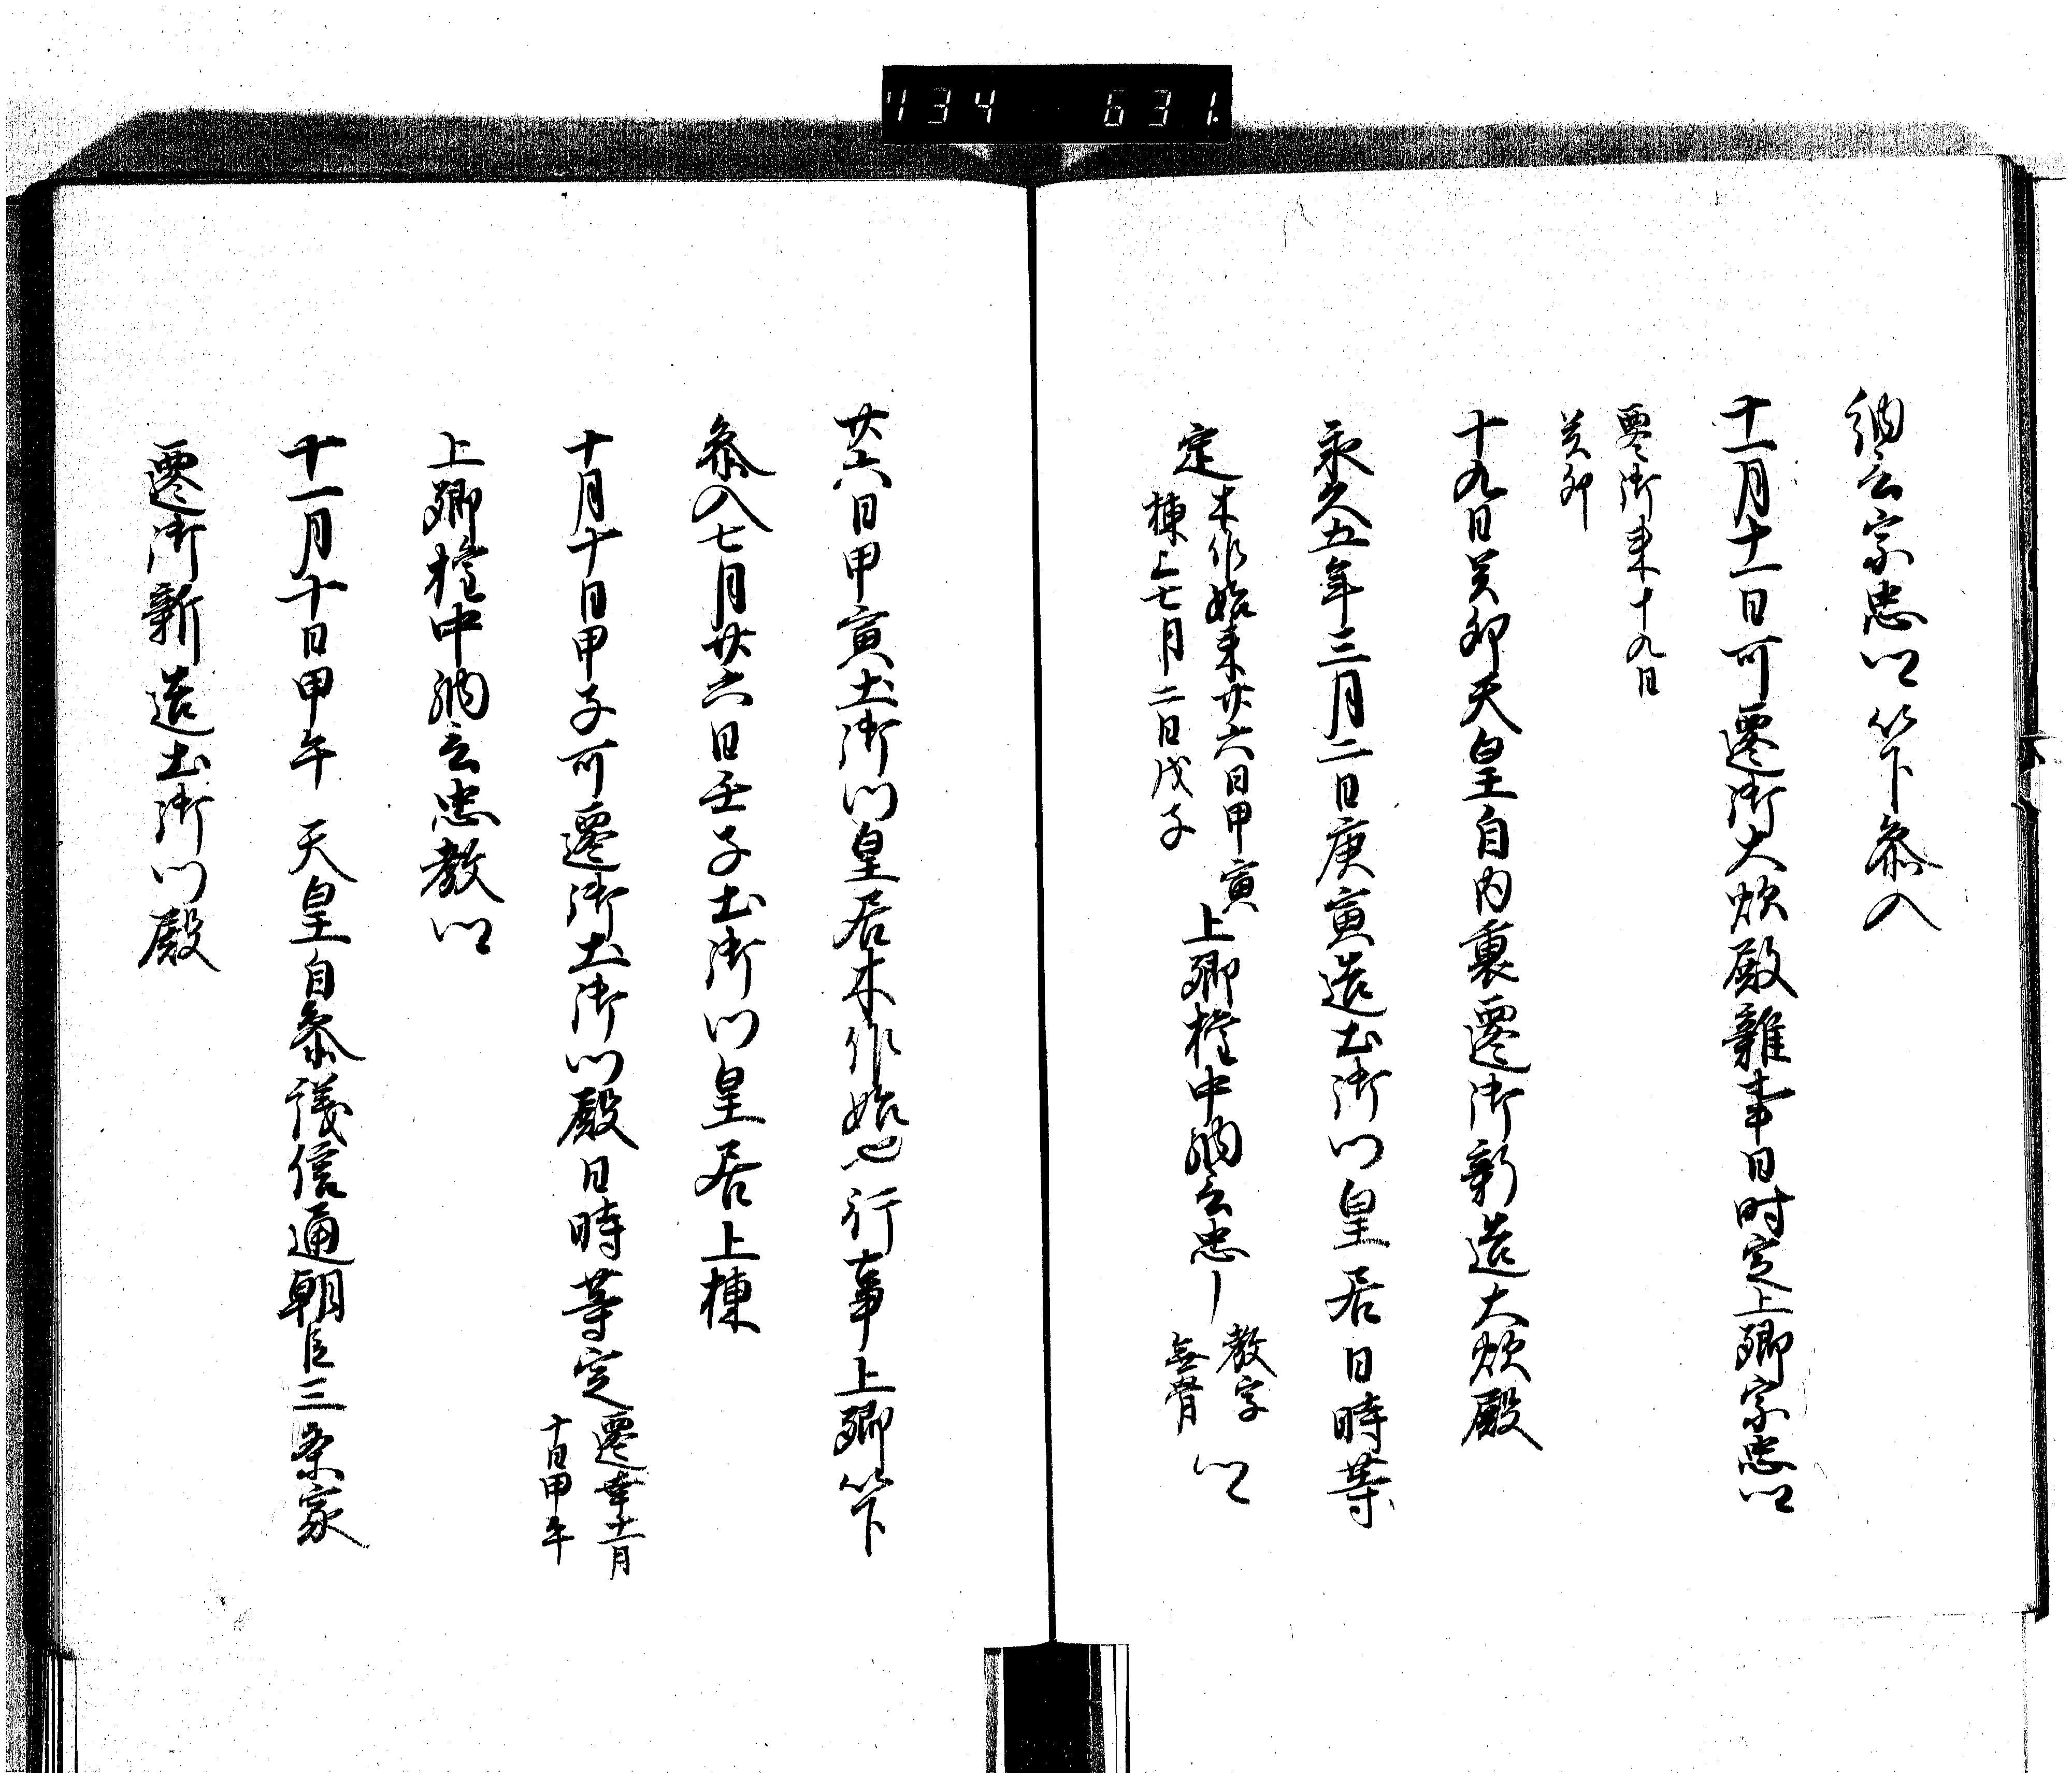 434 631
納言宗忠以下参入
十一月十一日可遷御大炊殿雑事日時定上卿宗忠卿
遷御来十九日
癸卯
十九日癸卯天皇自内裏遷御新造大炊殿
永久五年三月二日庚寅造土御門皇居日時等
定
木作始来廿六日甲寅
棟上七月二日戊子
上卿権中納言忠〡
教字
無骨
卿
廿六日甲寅土御門皇居木作始也行事上卿以下
参入七月廿六日壬子土御門皇居上棟
十月十日甲子可遷御土御門殿日時等定
遷幸十一月
十日甲午
上卿権中納言忠教卿
十一月十日甲午 天皇自参議信通朝臣三条家
遷御新造土御門殿